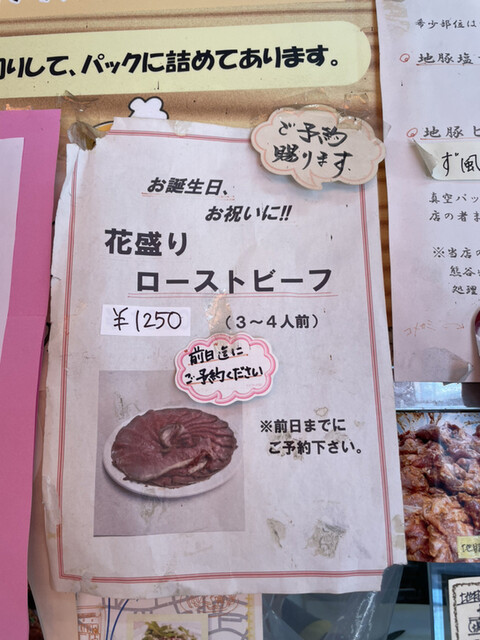 りして、パックに詰めてあります。
ご予約
賜ります
お誕生日、
お祝いに!!
花盛り
ローストビーフ
¥1250
(3〜4人前)
前日迄に
ご予約ください
※前日までに
ご予約下さい。
希少部位は
地豚塩
地豚ヒ
真空パッ
店の者ま
※当店の
熊谷
処理